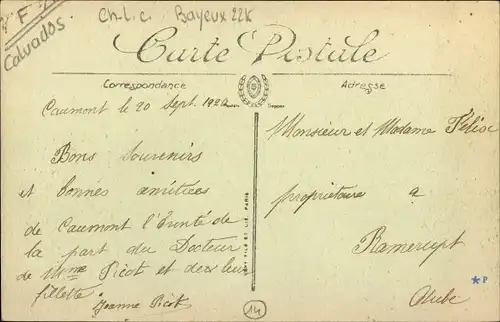 F
Calvados.
Ch-l.c. Bayeux 22K
Carte Postale
Correspondance
Adresse
Caumont le 20 Sept. 1920
Bons Souvenirs
et bonnes amitiées
de Caumont l'Eventé de
la part du Docteur
de Mme Picot et de leur
fillette.
Jeanne Picot
Monsieur et Madame Félix
propriétaire a
Ramerupt
Aube
ET FILS ET CIE PARIS
14
*P